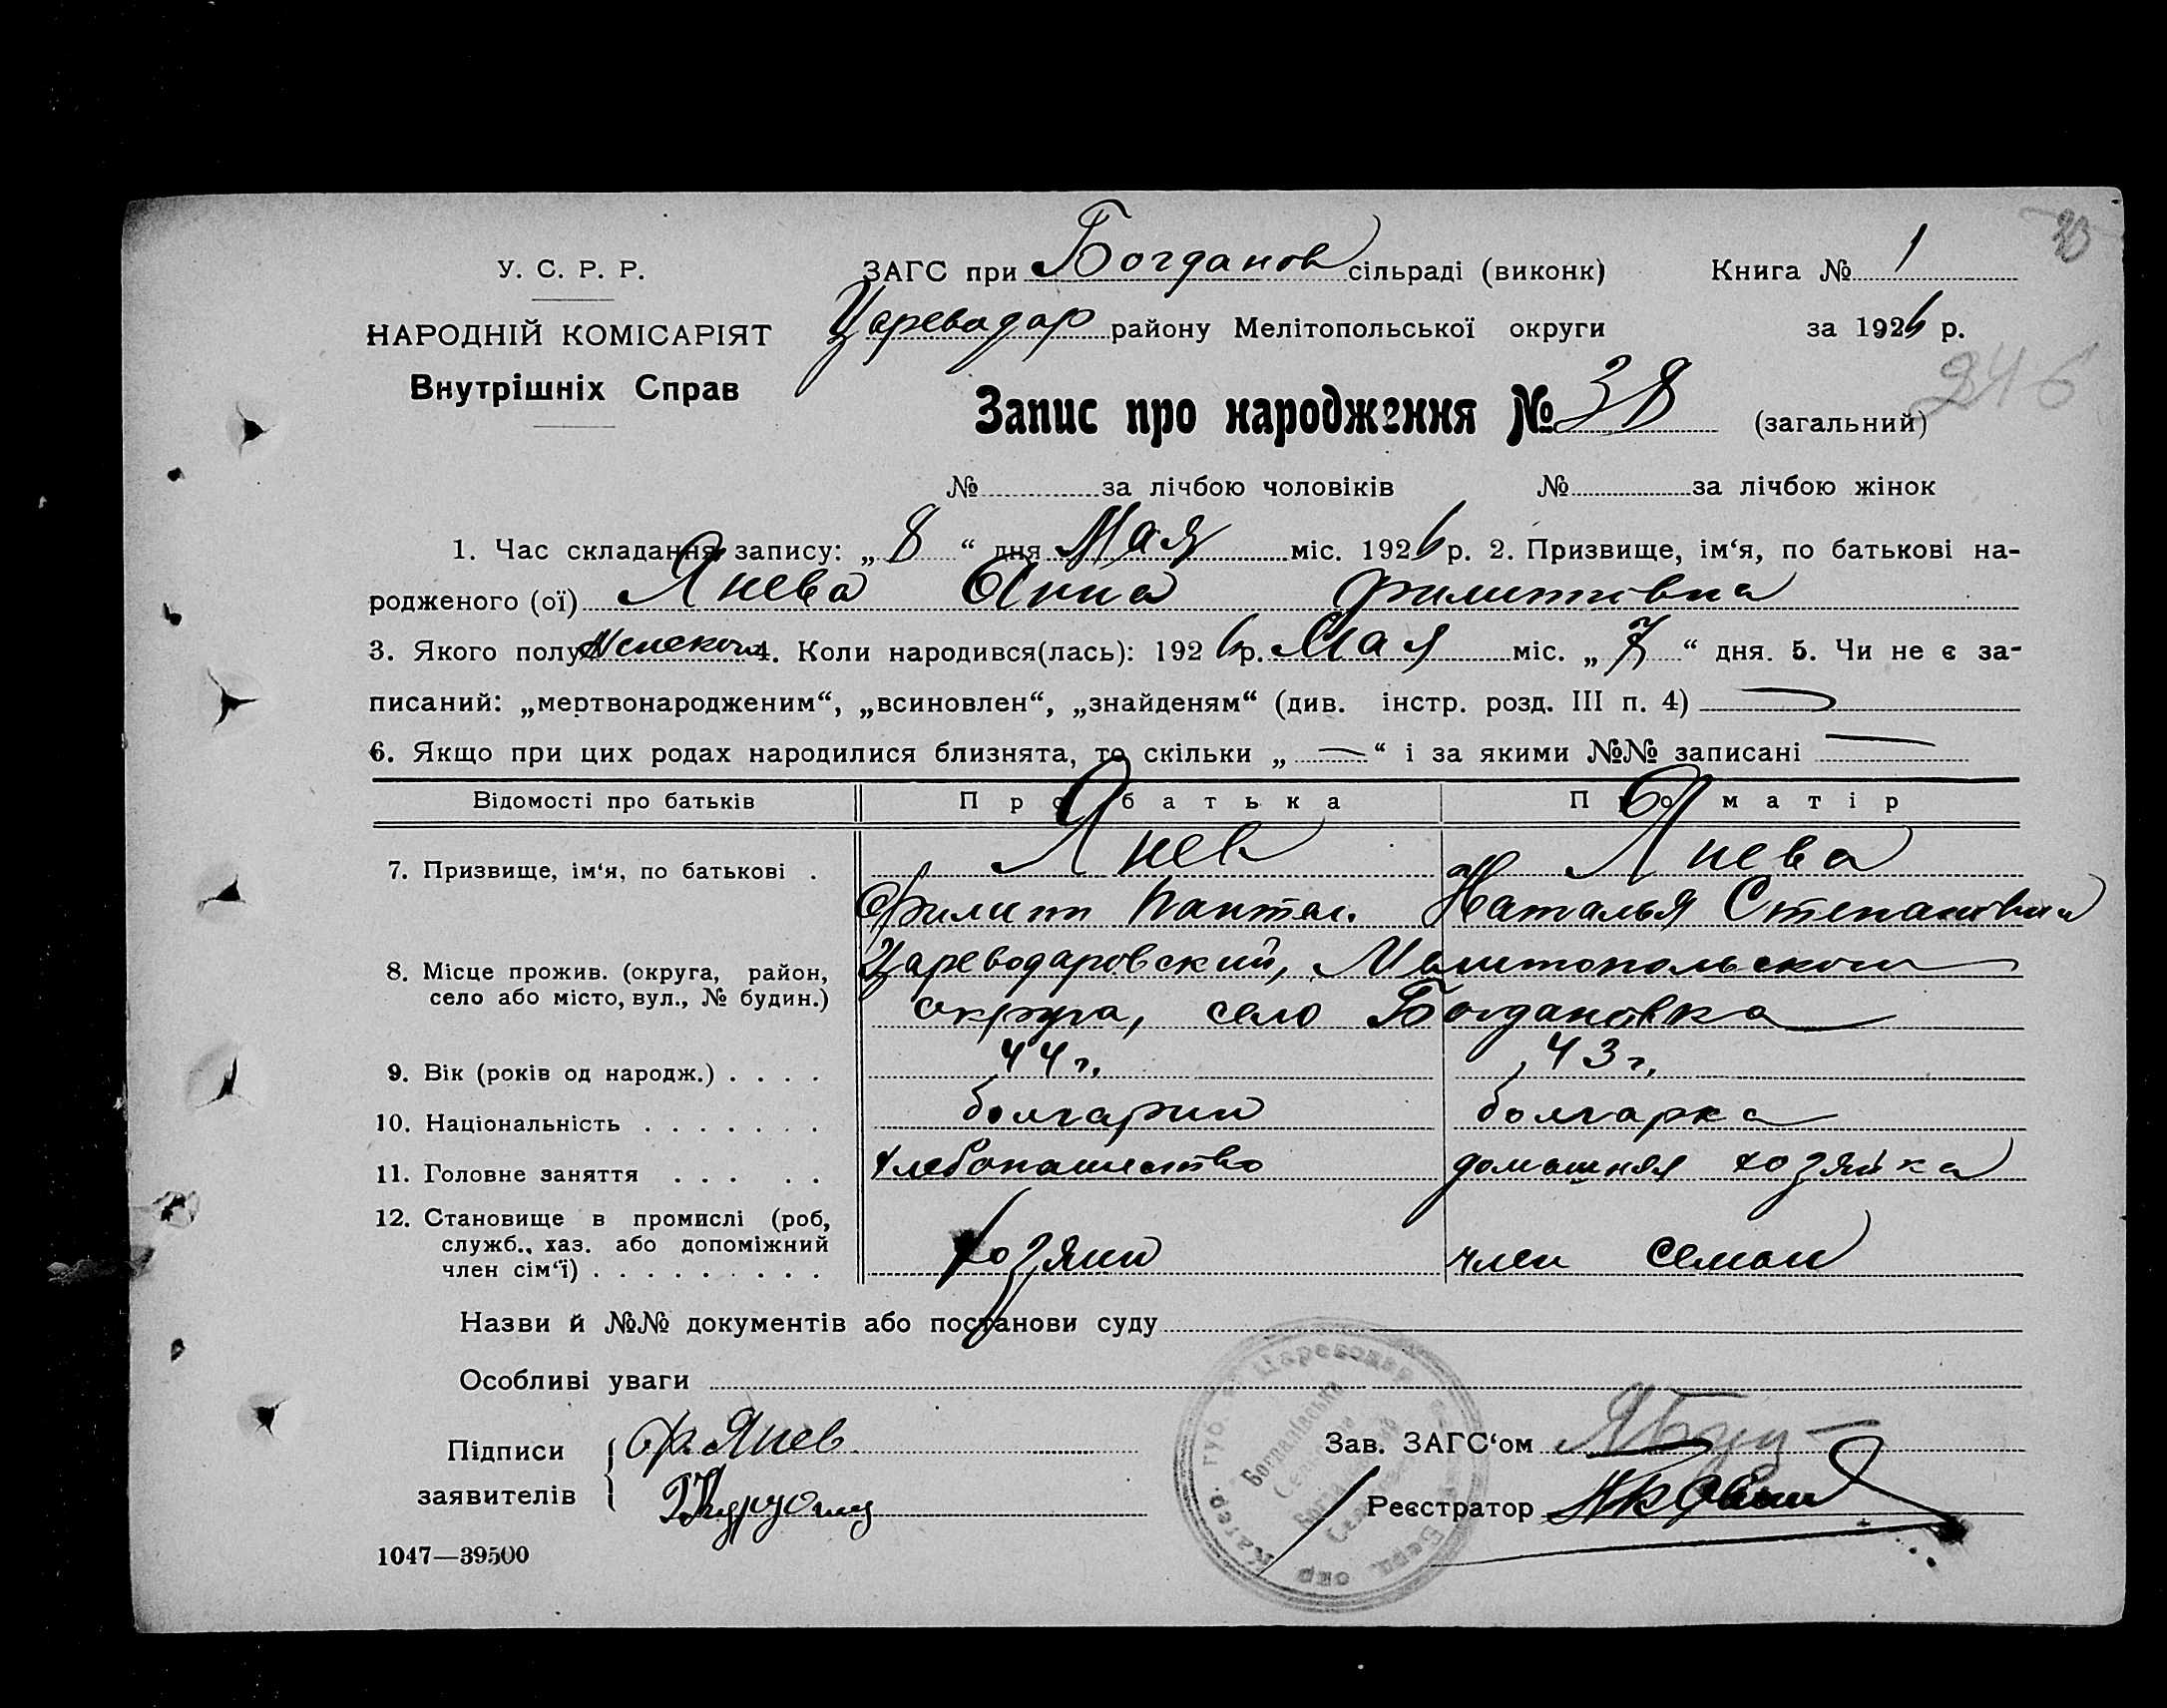 У. С. Р. Р.
НАРОДНІЙ КОМІСАРІЯТ
Внутрішніх Справ
ЗАГС при Богданов сільраді (виконк) Книга № 1
Цареводар району Мелітопольської округи за 1926 р.
246
Запис про народження № 38 (загальний)
№ за лічбою чоловіків № за лічбою жінок
1. Час складання запису: „ 8 “ дня Мая міс. 1926 р. 2. Призвище, ім‘я, по батькові на-
родженого (ої) Янева Анна Филиповна
3. Якого полу женского 4. Коли народився(лась): 1926 р. Мая міс. „ 7 “ дня. 5. Чи не є за-
писаний: „мертвонародженим“, „всиновлен“, „знайденям“ (див. інстр. розд. III п. 4) —
6. Якщо при цих родах народилися близнята, то скільки „ — “ і за якими №№ записані —
Відомості про батьків Про батька Про матір
7. Призвище, ім‘я, по батькові . Янев Янева
Филипп Пантел. Наталья Степановна
8. Місце прожив. (округа, район, Цареводаровский, Мелитопольского
село або місто, вул., № будин.) округа, село Богдановка
9. Вік (років од народж.) . . . . 44 г. 43 г.
10. Національність . . . . . . . болгарин болгарка
11. Головне заняття . . . . . хлебопашество домашняя хозяйка
12. Становище в промислі (роб,
служб., хаз. або допоміжний
член сім‘ї) . . . . . . . . . хозяин член семьи
Назви й №№ документів або постанови суду
Особливі уваги
Підписи заявителів Ф. Янев
Зав. ЗАГС‘ом
Реєстратор
1047—39500